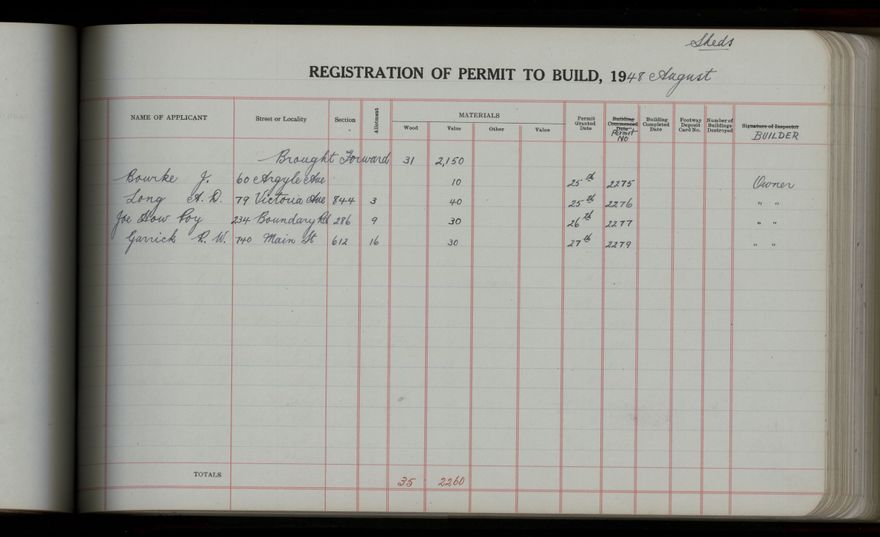 Sheds
REGISTRATION OF PERMIT TO BUILD, 1948 August
NAME OF APPLICANT Street or Locality Section Allotment MATERIALS Wood Value Other Value Permit Granted Date Building Commenced Date Permit No Building Completed Date Footway Deposit Card No. Number of Buildings Destroyed Signature of Inspector BUILDER
Brought Forward 31 2,150
Bourke J. 60 Argyle Ave 10 25th 2275 Owner
Long A. D. 79 Victoria Ave 844 3 40 25th 2276 " "
Joe How Poy 234 Boundary Rd 286 9 30 26th 2277 " "
Garrick R. W. 740 Main St 612 16 30 27th 2279 " "
TOTALS 35 2260